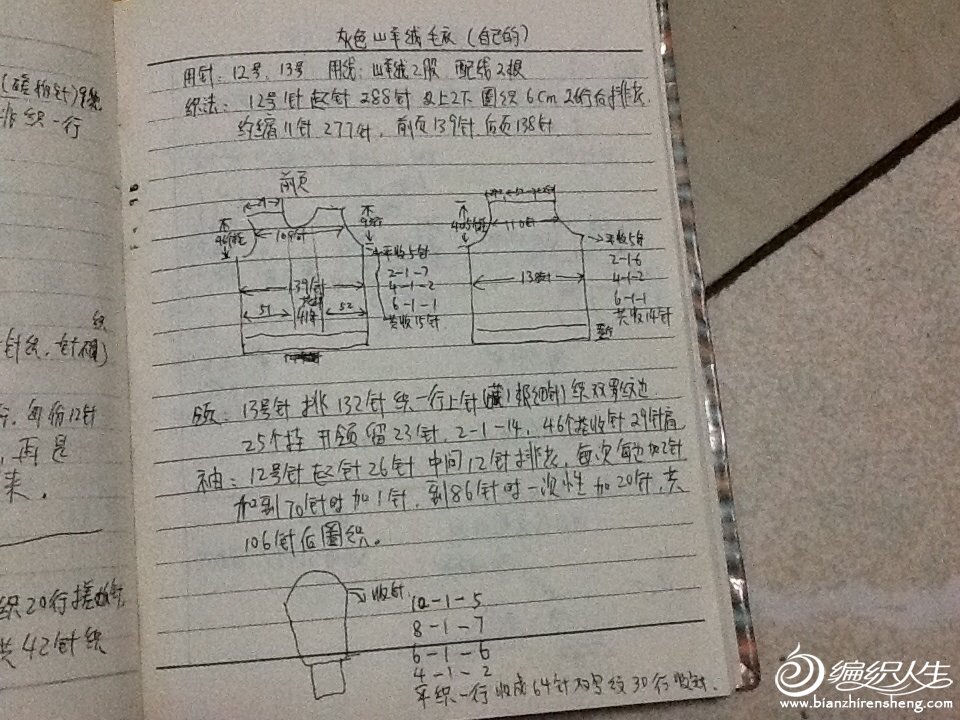 (碰板针)
非织一行
针织.
12针
再是
来.
织20行搓
共42针织
灰色山羊绒毛衣(自己的)
用针: 12号、13号 用线: 山羊绒2股 配线2根
织法: 12号针起针288针 2上2下 圈织6cm 26行后排花
约缩11针 277针, 前页139针 后页138针
前页
109针
139针
51
41针
52
平收5针
2-1-7
4-1-2
6-1-1
共收15针
110针
138针
平收5针
2-1-6
4-1-2
6-1-1
共收14针
领: 13号针 挑132针 织一行上针 织双罗纹边
25个挂 开领留23针, 2-1-14, 46个挂收针 29针肩
袖: 12号针 起针26针 中间12针排花, 每次每边加2针
加到70针时加1针, 到86针时一次性加20针, 共
106针后圈织。
收针
10-1-5
8-1-7
6-1-6
4-1-2
平织一行收成64针双罗纹30行收针.
编织人生
www.bianzhirensheng.com